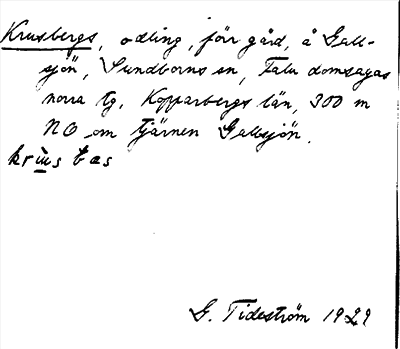 Krusbergs, odling, förr gård, å Gall-
sjön, Sundborns sn, Falu domsagas
norra tg, Kopparbergs län, 300 m
NO om tjärnen Gallsjön.
krùs bas
G. Tideström 1929